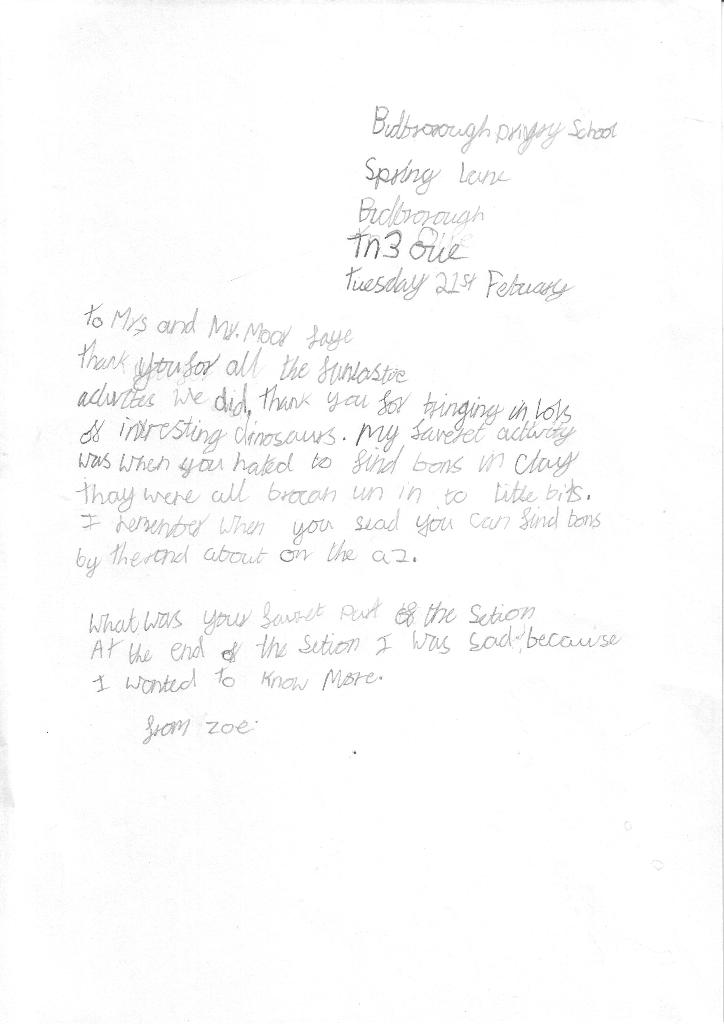 Bidbrorough primary School
Spring Lane
Bidbrorough
Tn3 0ue
Tuesday 21st Febuary
To Mrs and Mr. Moor
thank you for all the funtastic
activites we did, thank you for bringing in lots
of intresting dinosaurs. My faveret activity
was when you hated to find bons in clay
thay were all brocan un in to little bits.
I remember when you sead you can find bons
by the and about on the
What was your favret part of the Setion
At the end of the Setion I was sad because
I wanted to know More.
from zoe.